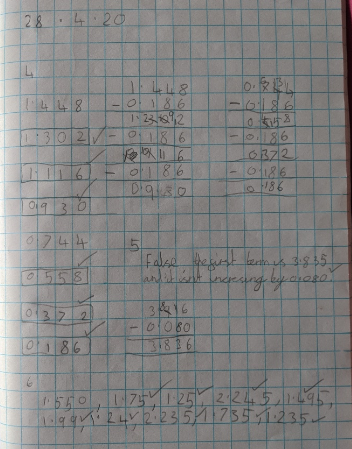 28.4.20
4
1.448
1.302
1.116
0.930
0.744
0.558
0.372
0.186
1.448
- 0.186
- 0.186
1.116
- 0.186
0.930
- 0.186
- 0.186
0.372
- 0.186
0.186
5
False term is 3.835
and it isnt by 0.080
- 0.080
3.836
6
1.550, 1.75, 1.25, 2.245, 1.495,
1.99, 1.24, 2.235, 1.735, 1.235